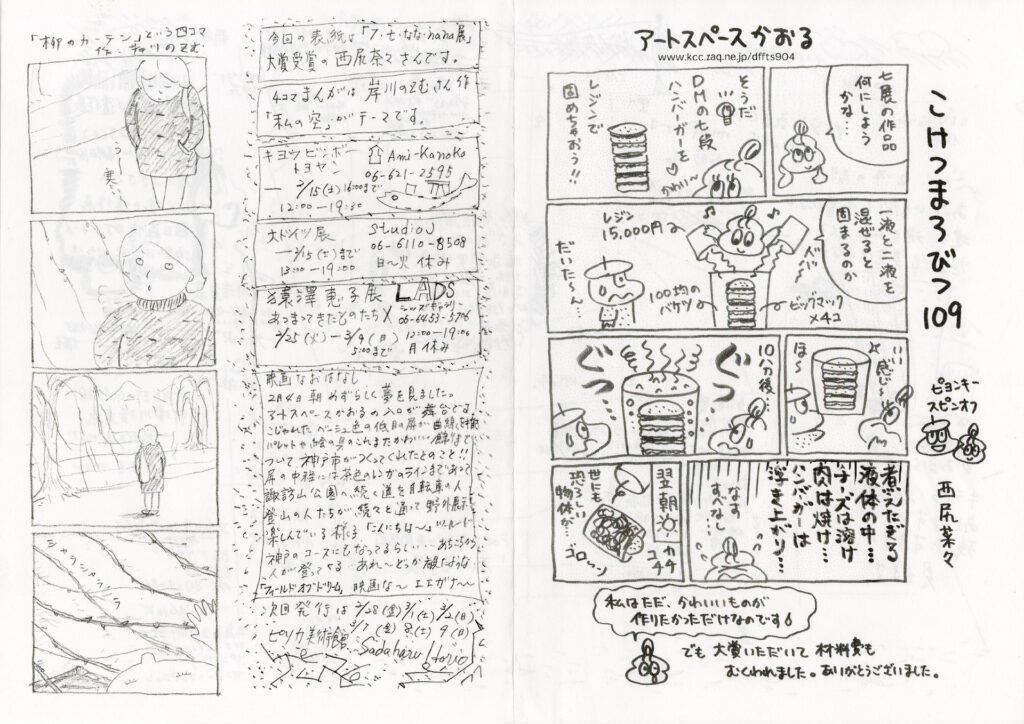 アートスペースかおる
www.kcc.zaq.ne.jp/dffts904
こけつまろびつ 109
ピヨンキー
スピンオフ
西尻菜々
七展の作品
何にしよう
かな…
そうだ
DMの七段
ハンバーガーを
かわいー
レジンで
固めちゃおう!!
一液と二液を
混ぜると
固まるのか
レジン
15,000円
だいた〜ん
100均の
バケツ
ビッグマック
×4コ
いい
感じ〜
ほ〜
10分後…
ぐつ
ぐつ
煮えたぎる
液体の中…
チーズは溶け
肉は焼け…
ハンバーガーは
浮き上がり…
なす
すべなし
翌朝
カチ
コチ
世にも
恐ろしい
物体が…
ゴローン
私はただ、かわいいものが
作りたかっただけなのです
でも 大賞いただいて 材料費も
むくわれました。ありがとうございました。
今回の表紙は「7・七・なな・nana展」
大賞受賞の 西尻奈々さんです。
4コマまんがは 岸川のぞむさん作
「私の空」がテーマです。
キョウビンボー
トヨヤン
Ami-Kanoko
06-621-2595
2/15(土)16:00まで
12:00ー19:30
大ドイツ展
studio J
06-6110-8508
ー2/15(土)まで
13:00ー19:00
日〜火 休み
猿澤恵子展
LADS
あつまってきたものたちX
06-6453-5706
2/25(火)ー3/9(日)
12:00ー19:00
5:00まで
月 休み
映画なおはなし
2月4日 朝 めずらしく 夢を見ました。
アートスペースかおるの入口が 舞台である
こじゃれた ベージュ色の低目の扉が 曲線を
パレットや絵の具のこれまたかわいい飾りまで
ついて 神戸市がつくってくれたとのこと!!
扉の中程には茶色のレンガのラインまであって
諏訪山公園へ続く道を自転車の人
登山の人たちが 続々と通って 野外展示を
楽しんでいる様子 「こんにちは〜」
神戸のコースにもなってるらしい…あちこちから
人が登ってくる あれ〜どっかで観たような
「フィールドオブドリーム」 映画な〜 エエがナ〜
次回発行は 2/28(金) 3/1(土) 3/2(日)
3/7(金) 8(土) 9(日)
ピリカ美術館
Sadaharu Horio
「柳のカーテン」という四コマ
作 岸川のぞむ
寒い
シャラシャラ